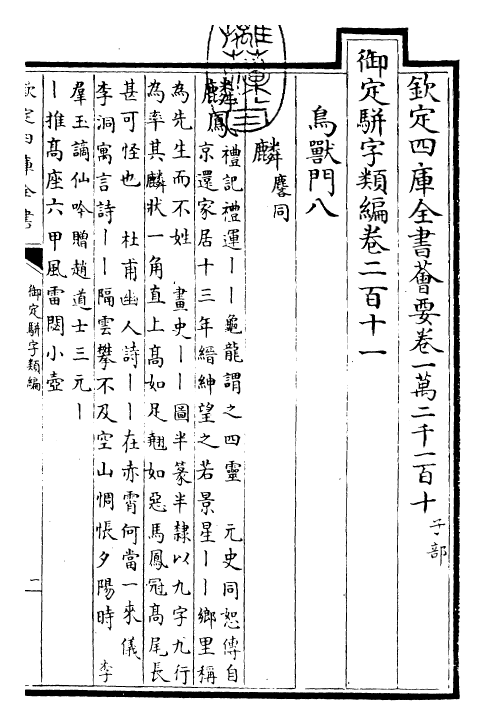 欽定四庫全書薈要卷一萬二千一百十 子部
御定駢字類編卷二百十一
鳥獸門八
麟 麐同
麟鳳 禮記禮運——龜龍謂之四靈 元史同恕傳自
京還家居十三年縉紳望之若景星——鄉里稱
為先生而不姓 畫史——圖半篆半隸以九字九行
為率其麟狀一角直上高如足翹如惡馬鳳冠高尾長
甚可怪也 杜甫幽人詩——在赤霄何當一來儀
李洞寓言詩——隔雲攀不及空山惆悵夕陽時 李
羣玉謫仙吟贈趙道士三元—
—推高座六甲風雷閟小壺
欽定四庫全書
御定駢字類編